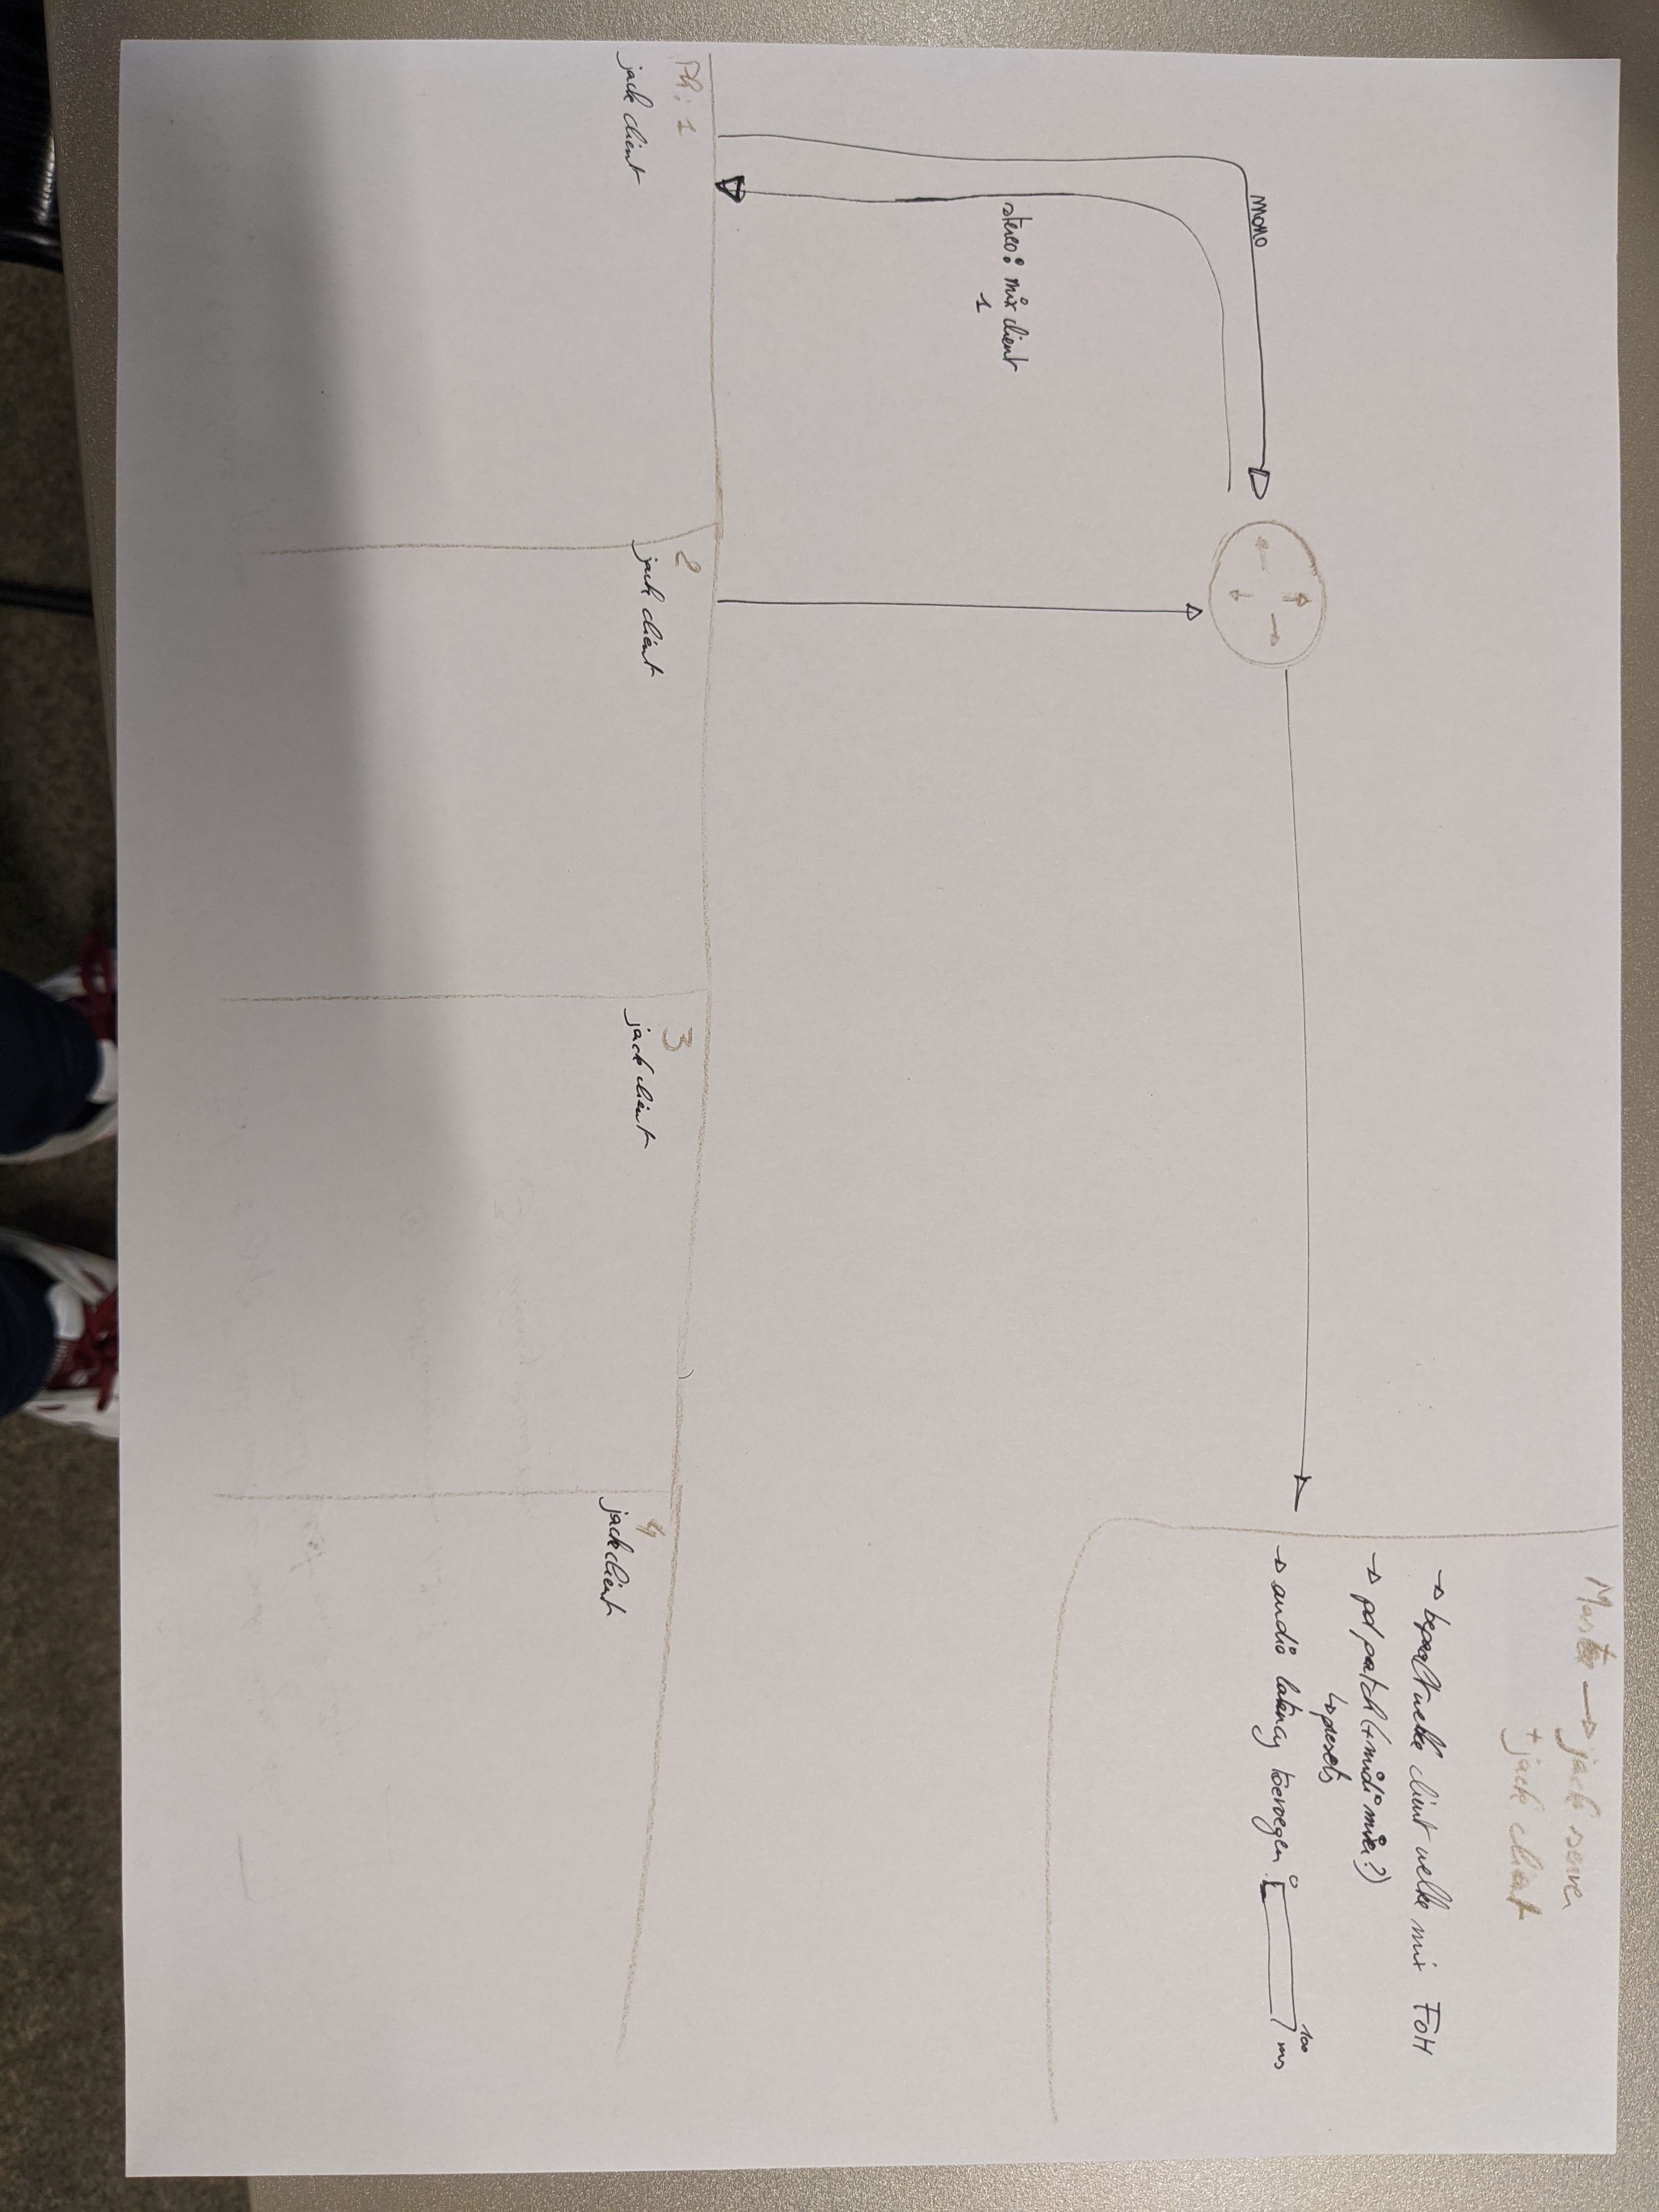 Master → jack server
+ jack client
→ bepaalt welke client welke mix FOH
→ pd patch (+ midi mixer?)
↳ presets
→ audio latency toevoegen :
0
100
ms
mono
stereo: mix client
1
1
jack client
2
jack client
3
jack client
4
jack client